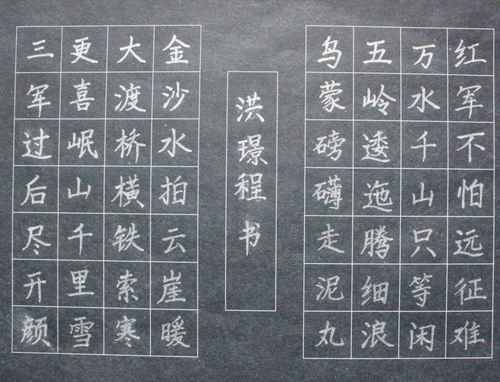 红军不怕远征难
万水千山只等闲
五岭逶迤腾细浪
乌蒙磅礴走泥丸
洪璟程书
金沙水拍云崖暖
大渡桥横铁索寒
更喜岷山千里雪
三军过后尽开颜